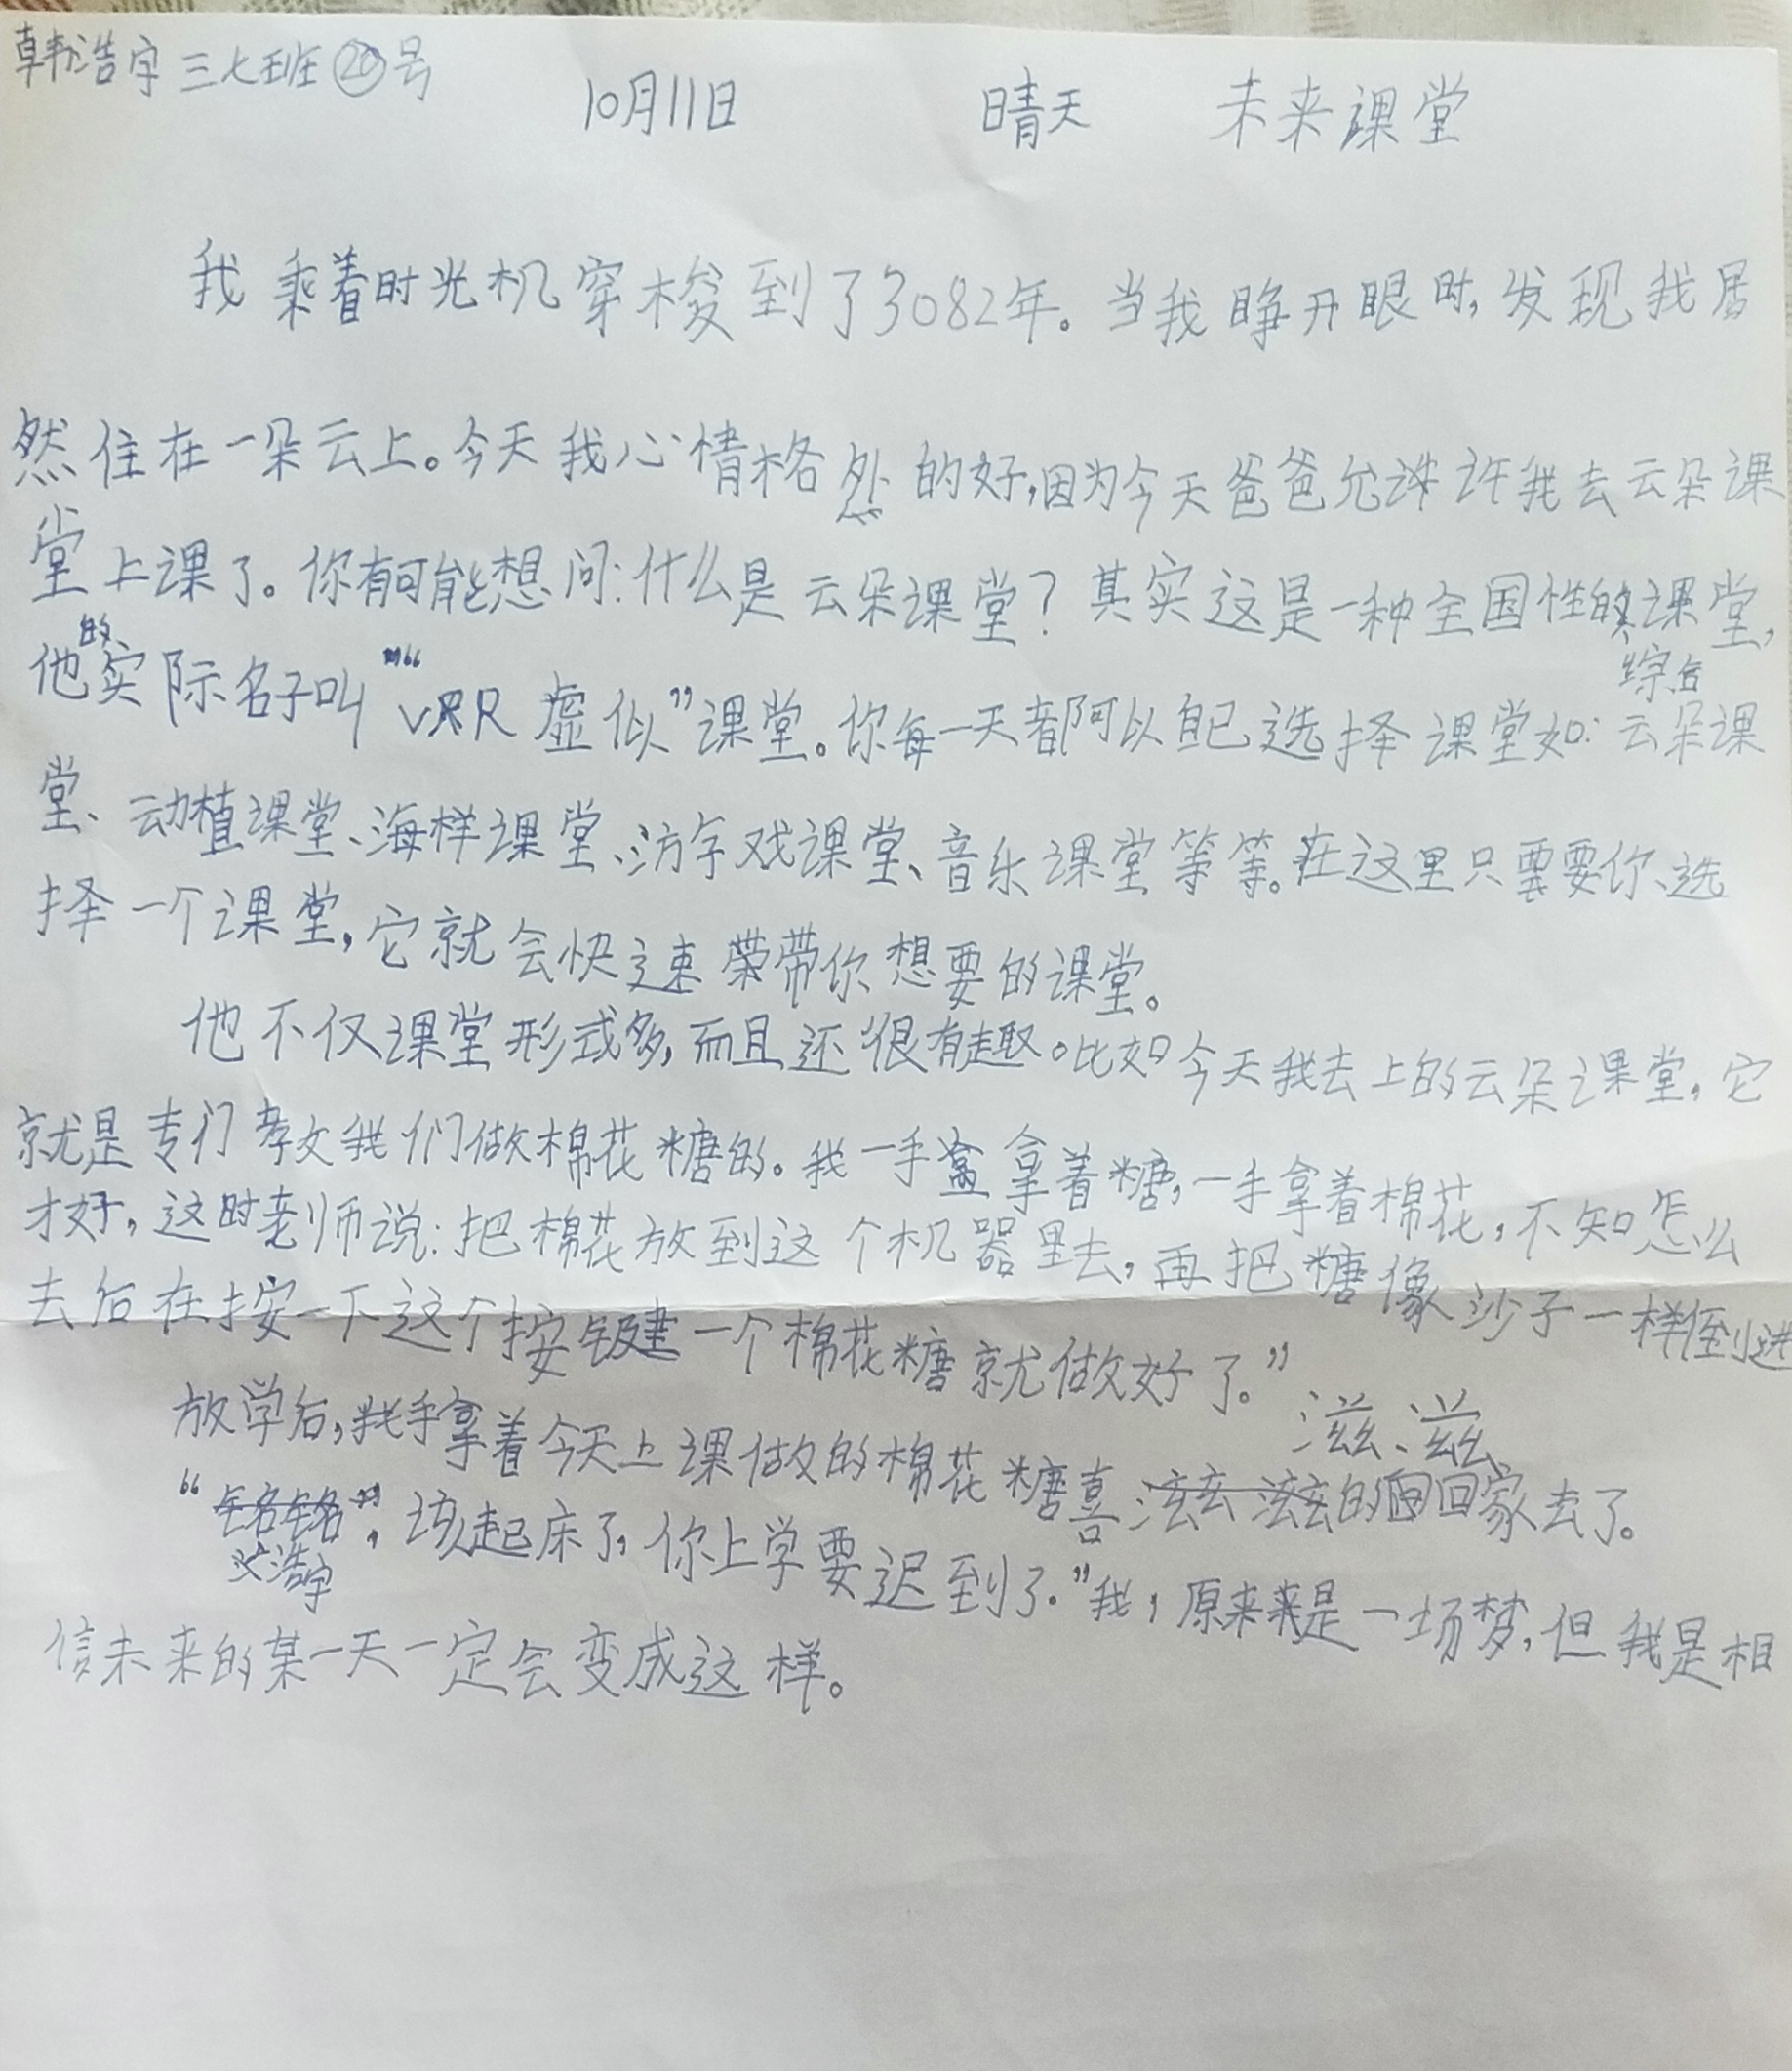 韩浩宇 三七班 ⑳号
10月11日 晴天 未来课堂
我乘着时光机穿梭到了3082年。当我睁开眼时,发现我居
然住在一朵云上。今天我心情格外的好,因为今天爸爸允许我去云朵课
堂上课了。你有可能想问:什么是云朵课堂?其实这是一种全国性的综合课堂,
他的实际名子叫“VR虚似”课堂。你每一天都可以自己选择课堂如:云朵课
堂、动植课堂、海样课堂、游戏课堂、音乐课堂等等。在这里只要你选
择一个课堂,它就会快速带你想要的课堂。
他不仅课堂形式多,而且还很有趣。比如今天我去上的云朵课堂,它
就是专门教我们做棉花糖的。我一手拿着糖,一手拿着棉花,不知怎么
才好,这时老师说:把棉花放到这个机器里去,再把糖像沙子一样倒进
去后在按一下这个按键一个棉花糖就做好了。”
放学后,我手拿着今天上课做的棉花糖喜滋滋的回家去了。
“浩宇,该起床了,你上学要迟到了。”我,原来是一场梦,但我是相
信未来的某一天一定会变成这样。